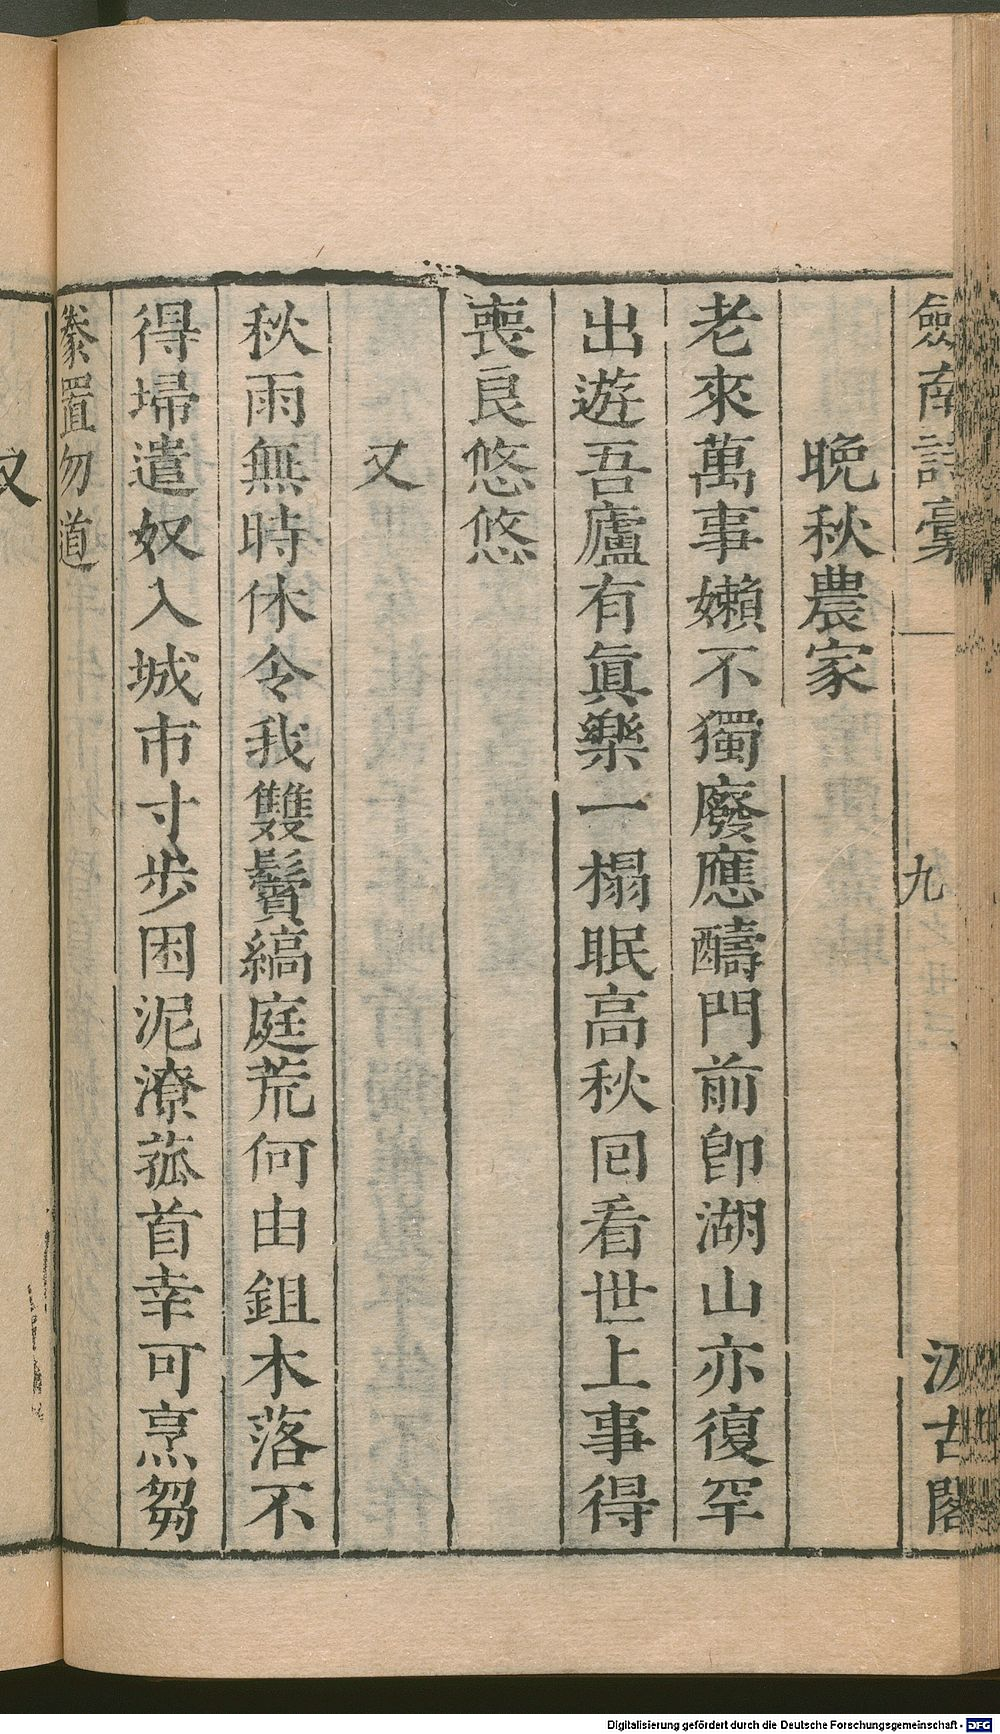 劍南詩稾
九
汲古閣
晚秋農家
老來萬事嬾不獨廢應醻門前卽湖山亦復罕
出遊吾廬有眞樂一榻眠高秋囘看世上事得
喪良悠悠
又
秋雨無時休令我雙鬢縞庭荒何由鉏木落不
得埽遣奴入城市寸步困泥潦菰首幸可烹芻
豢置勿道
又
Digitalisierung gefördert durch die Deutsche Forschungsgemeinschaft - DFG